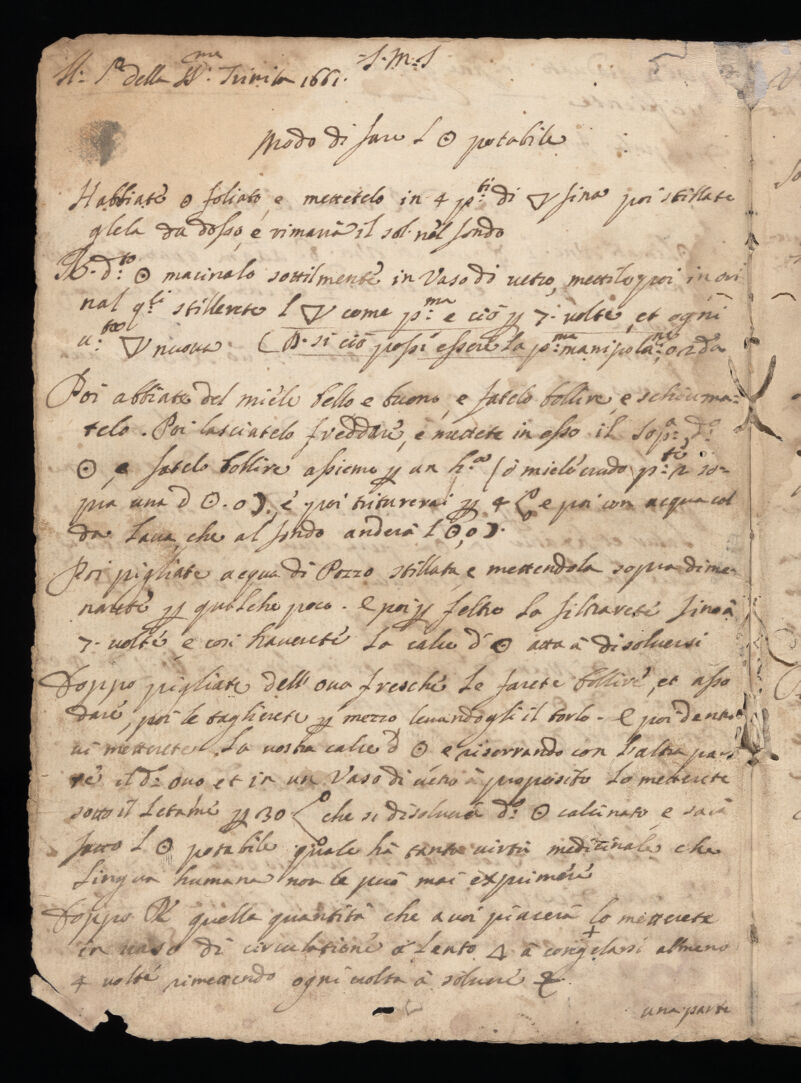 Al: P.e della SS.ma Trinità 1661. S.M.S
Modo di fare l ☉ potabile
Habbiate ☉ foliato, e mettetelo in 4 p.ti di 🜄 fina poi stillate
glela da dosso, e rimarrà il sol nel fondo
R. d.to ☉ macinalo sottilmente in Vaso di vetro, mettilo poi in ori
nal q.li stillerete l 🜄 come p.ma e ciò p 7. volte, et ogni
v.ta 🜄 nuova. (A. si ciò possi essere la p.ma manipola.ne, o 2.da
Poi abbiate del miele bello e buono, e fatelo bollire, e schiuma=
telo. Poi lasciatelo freddare, e mettete in esso il sop.a d.o
☉, e fatelo bollire assieme p un h.a (ò miele crudo p.te 2 so=
pra una d ☉. o ☽), e poi triturerai p 4 e poi con acqua cal
da lava, che al fondo anderà l ☉, o ☽.
Poi pigliate acqua di Pozzo stillata e mettendola sopra dime=
narete p qualche poco. e poi p feltro la filtrarete sino à
7. volte, e così haverete la calce d ☉ atta à disolversi
Doppo pigliate dell'ova fresche le farete bollire, et asso
dare, poi le taglierete p mezzo levandogli il torlo. e poi dentro
vi metterete la vostra calce d ☉ e riserrando con l'altra par=
te il d.o ovo et in un Vaso di vetro à proposito lo metterete
sotto il letame p 30 che si disolverà d.o ☉ calcinato, e sarà
fatto l ☉ potabile quale hà tante virtù medicinale che
lingua humana non le può mai exprimere
Doppo R quella quantità che a voi piacerà lo metterete
in vaso di circulatione à lento 🜂 à congelarsi almeno
4 volte rimettendo ogni volta à solvere
una parte